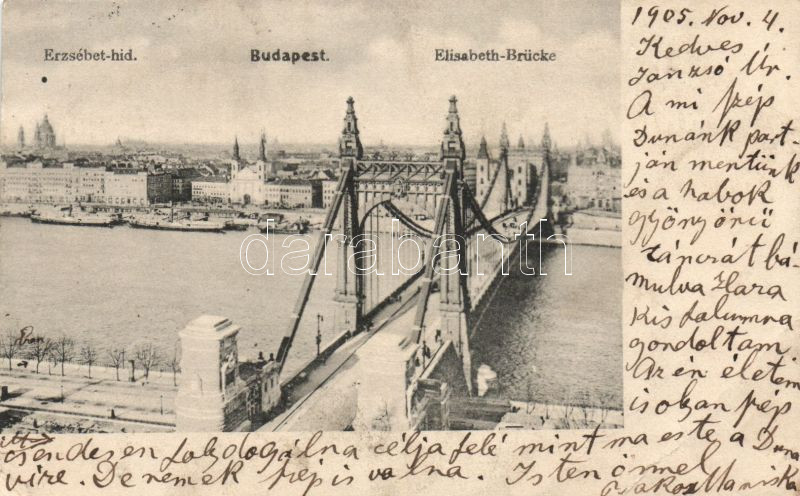 Erzsébet-hid.
Budapest.
Elisabeth-Brücke
1905. Nov. 4.
Kedves
Janzsó Úr.
A mi szép
Dunánk part-
ján mentünk
és a habok
gyönyörű
tánczát bá-
mulva
Kis falumra
gondoltam.
Az én életem
is olyan szép
csendesen folydogálna célja felé mint ma este a Duna
vize. De remek szép is volna. Isten önnel
darabanth